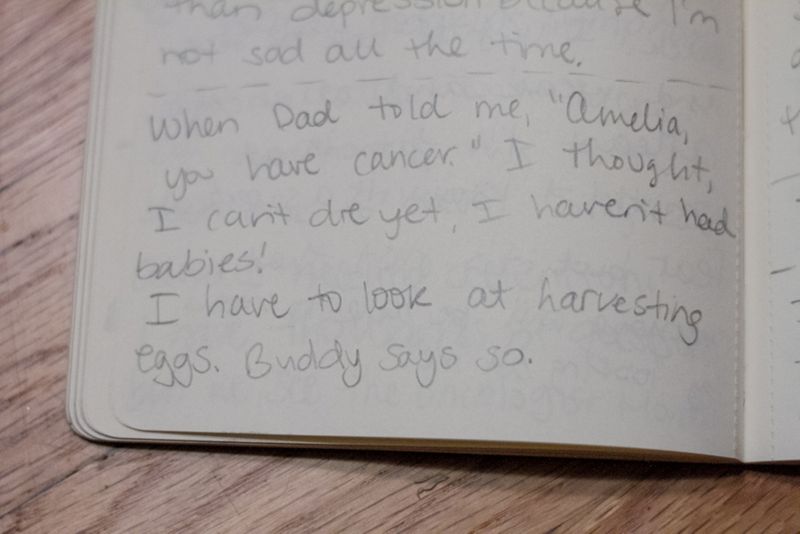 than depression because I'm
not sad all the time.
When Dad told me, "Amelia,
you have cancer." I thought,
I can't die yet, I haven't had
babies!
I have to look at harvesting
eggs. Buddy says so.